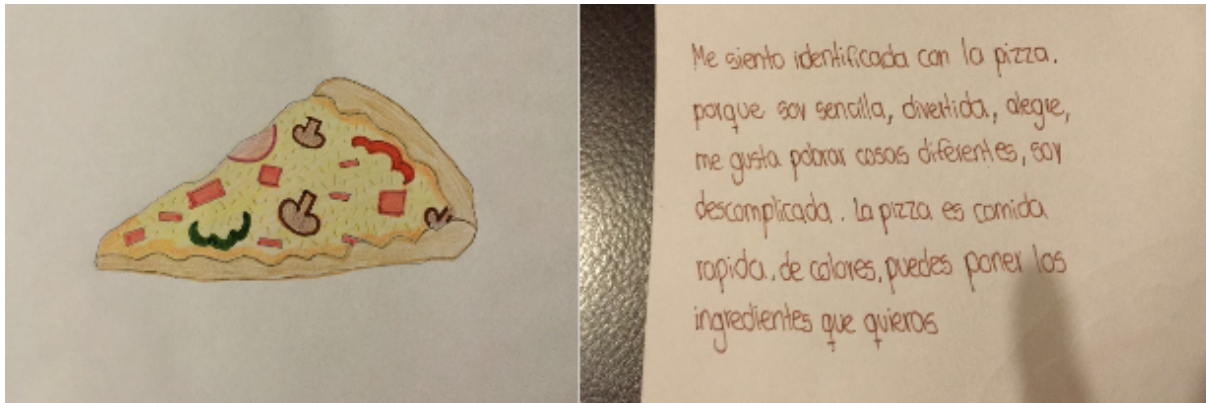 Me siento identificada con la pizza.
porque soy sencilla, divertida, alegre,
me gusta pobrar cosas diferentes, soy
descomplicada. la pizza es comida
rapida. de colores, puedes poner los
ingredientes que quieras